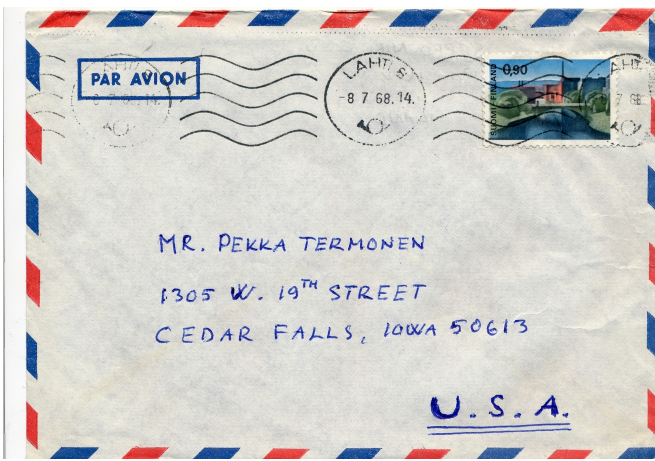 LAHTI 6
PAR AVION
-8 7 68.14.
LAHTI 6
-8 7 68.14.
0,90
SUOMI FINLAND
LAHTI
7 68
MR. PEKKA TERMONEN
1305 W. 19TH STREET
CEDAR FALLS, IOWA 50613
U.S.A.